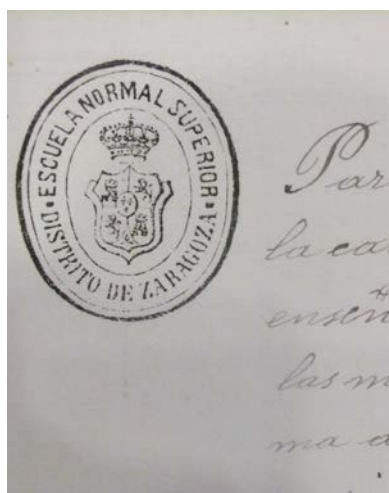 ESCUELA NORMAL SUPERIOR
DISTRITO DE ZARAGOZA
Par
la ca
enseñ
las m
ma a